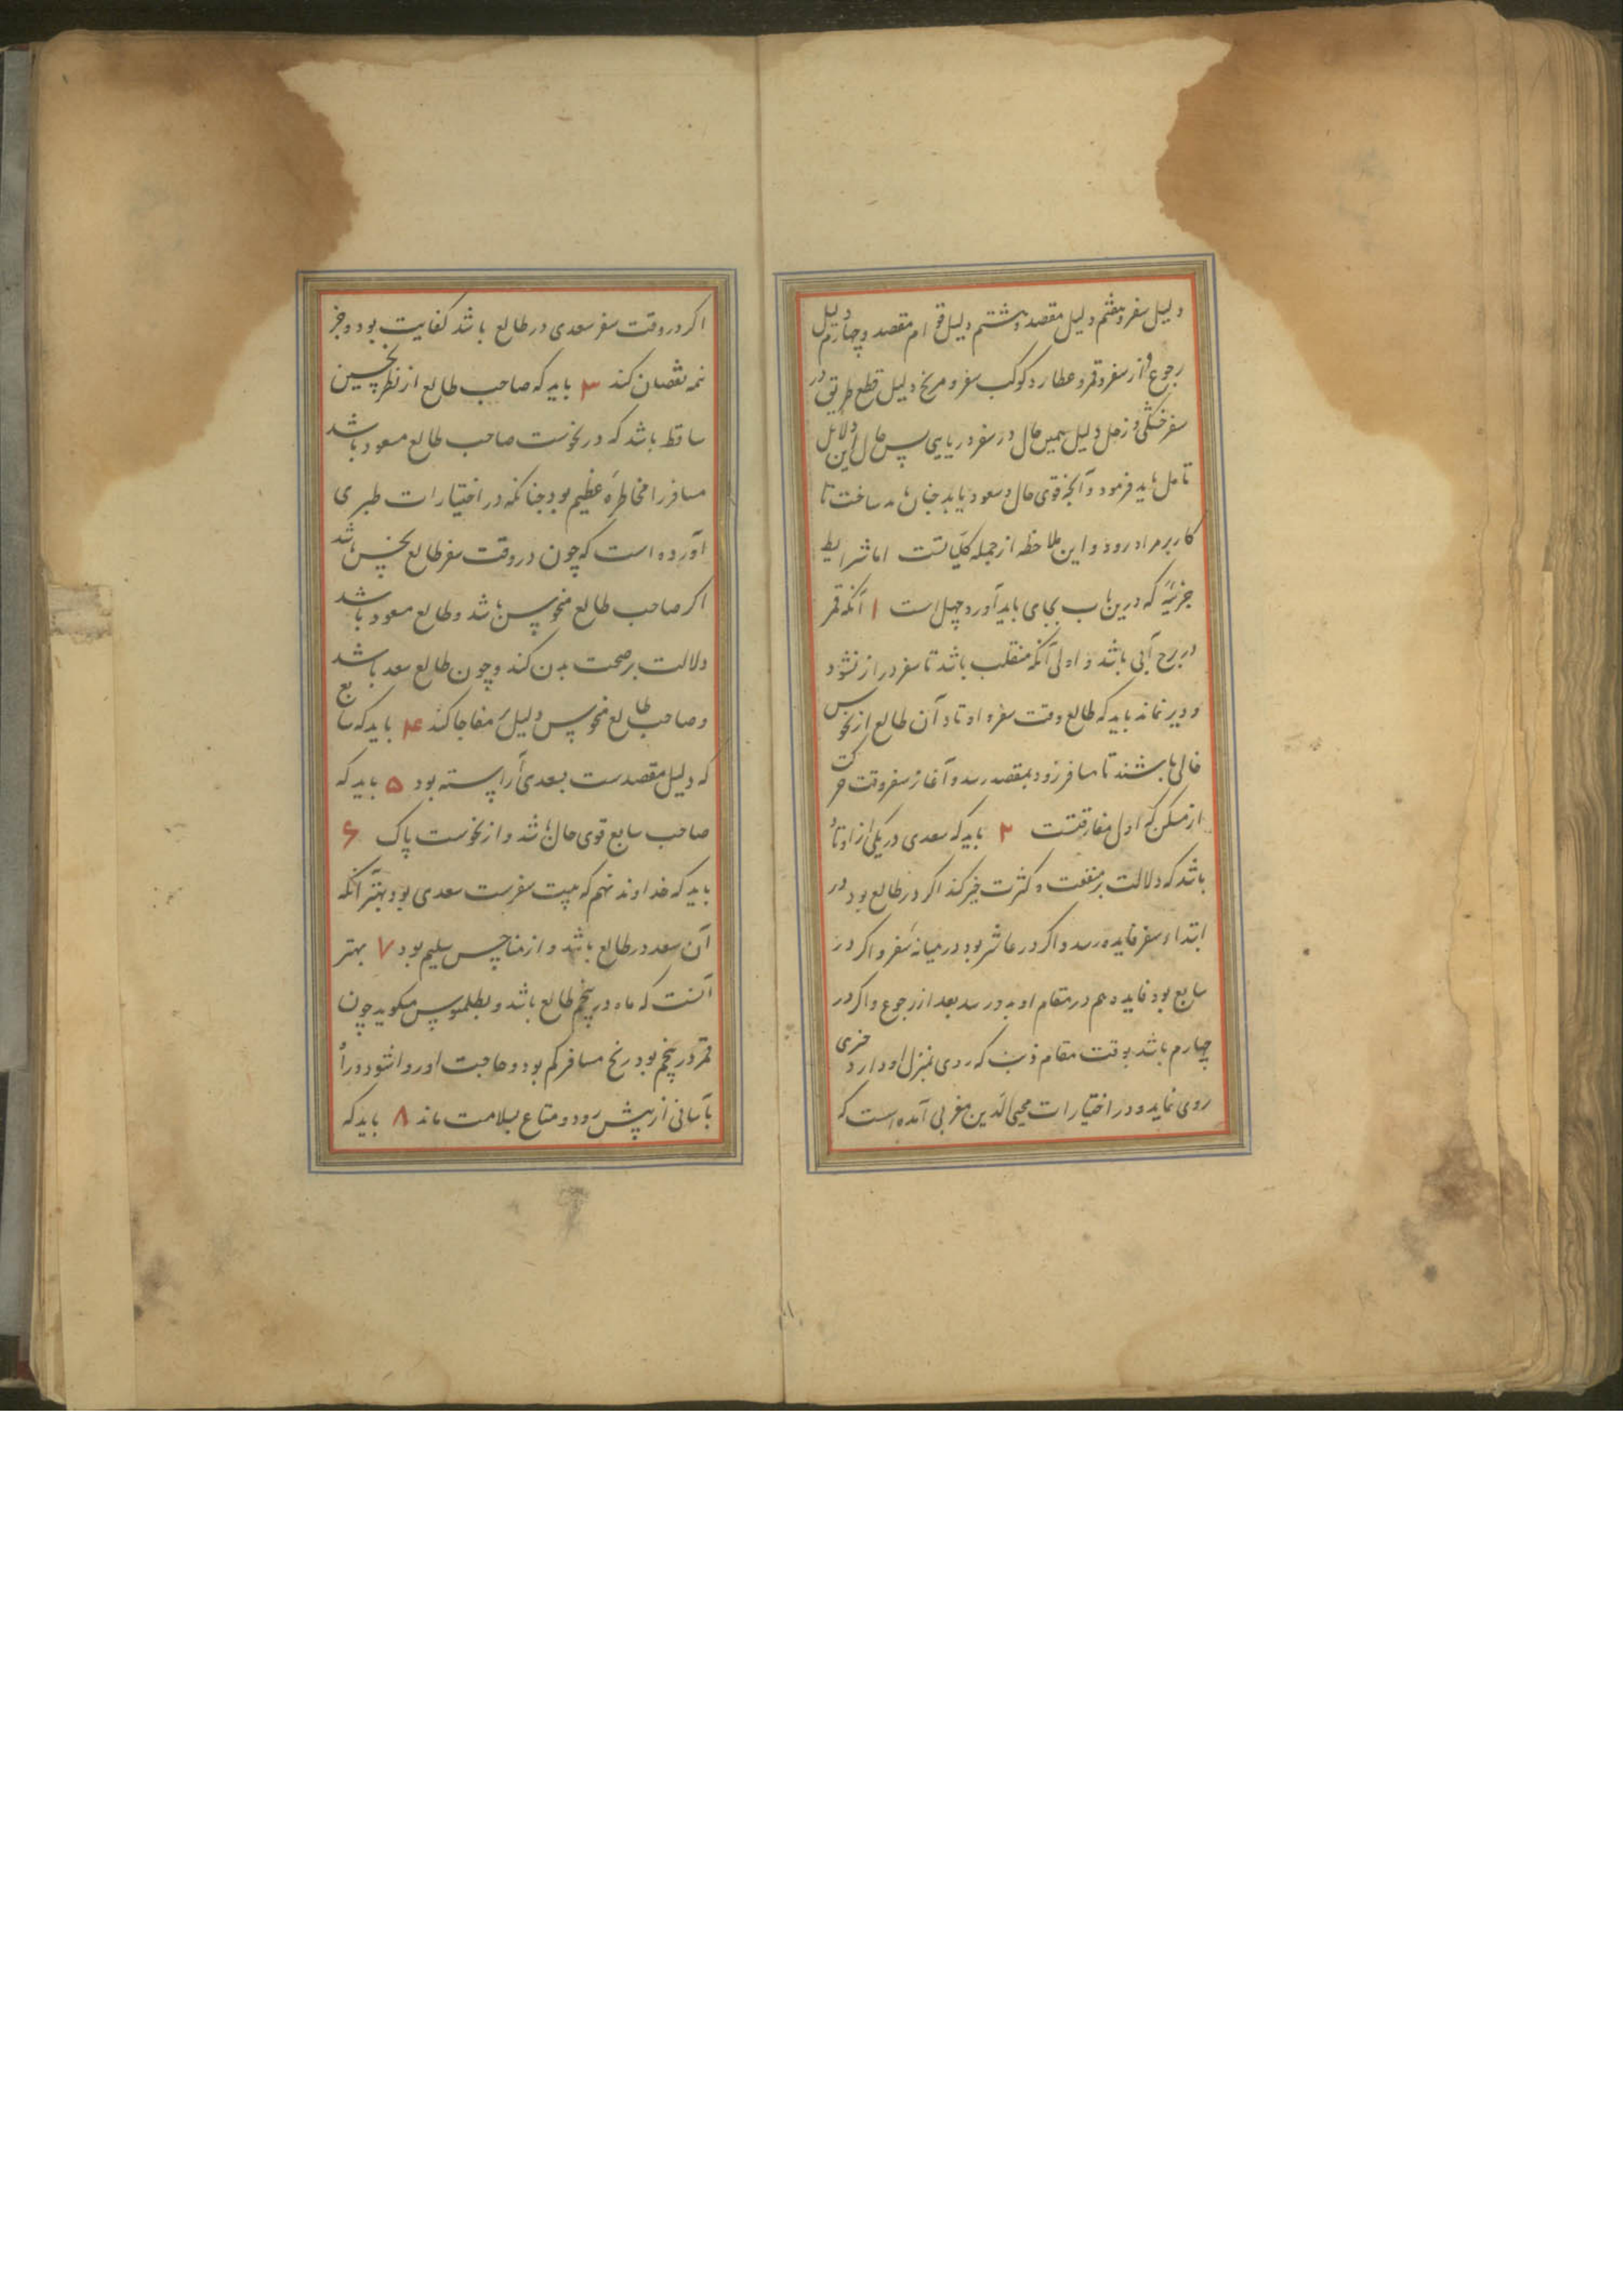 دلیل سفر و هفتم دلیل مقصد و هشتم دلیل قوام مقصد و چهارم دلیل
رجوع از سفر و قمر و عطارد کوکب سفر و مریخ دلیل قطع طریق در
سفر خشکی و زحل دلیل همین حال در سفر دریایی پس حال این دلایل
تامل باید فرمود و آنچه قوی حال و سعود باید چنان باید ساخت تا
کار بر مراد رود و این ملاحظه از جمله کلیاتست اما شرایط
جزئیه که درین باب بجای باید آورد چهل است ۱ آنکه قمر
در برج آبی باشد و اولی آنکه منقلب باشد تا سفر دراز نشود
و دیر نماند باید که طالع وقت سفر و اوتاد آن طالع از نحوس
خالی باشند تا مسافر زود بمقصد رسد و آغاز سفر وقت حرکت
از مسکن که اول مفارقتست ۲ باید که سعدی در یکی از اوتاد
باشد که دلالت بر منفعت و کثرت خیر کند اگر در طالع بود در
ابتداء سفر فایده رسد و اگر در عاشر بود در میانه سفر و اگر در
سابع بود فایده هم در مقام او بدو رسد بعد از رجوع و اگر در
چهارم باشد بوقت مقام که روی بمنزل او دارد خیری
روی نماید و در اختیارات محیی الدین مغربی آمده است که
اگر در وقت سفر سعدی در طالع باشد کفایت بود و جز
نمه نقصان کند ۳ باید که صاحب طالع از نظر نحسین
ساقط باشد که در نحوست صاحب طالع مسعود باشد
مسافر را مخاطره عظیم بود چنانکه در اختیارات طبری
آورده است که چون در وقت سفر طالع نحس باشد
اگر صاحب طالع منحوس باشد و طالع مسعود باشد
دلالت بر صحت بدن کند و چون طالع سعد باشد
و صاحب طالع منحوس دلیل مفاجا کند ۴ باید که سابع
که دلیل مقصدست بسعدی آراسته بود ۵ باید که
صاحب سابع قوی حال باشد و از نحوست پاک ۶
باید که خداوند نهم که بیت سفرست سعدی بود بهتر آنکه
آن سعد در طالع باشد و از مناحس سلیم بود ۷ بهتر
آنست که ماه در پنجم طالع باشد و بطلمیوس میگوید چون
قمر در پنجم بود رنج مسافر کم بود و حاجت او روا شود و را
بآسانی از پیش رود و متاع بسلامت ماند ۸ باید که